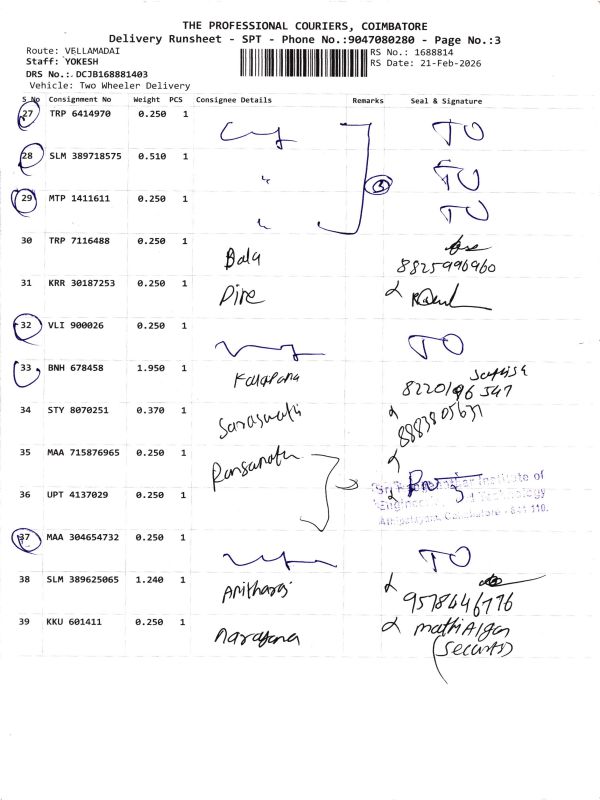 THE PROFESSIONAL COURIERS, COIMBATORE
Delivery Runsheet - SPT - Phone No.:9047080280 - Page No.:3
Route: VELLAMADAI
RS No.: 1688814
Staff: YOKESH
RS Date: 21-Feb-2026
DRS No.:.DCJB168881403
Vehicle: Two Wheeler Delivery
S_No Consignment No Weight PCS Consignee Details Remarks Seal & Signature
27 TRP 6414970 0.250 1 TO
28 SLM 389718575 0.510 1 " TO
29 MTP 1411611 0.250 1 " TO
3
30 TRP 7116488 0.250 1 Bala
8825996960
31 KRR 30187253 0.250 1
32 VLI 900026 0.250 1 TO
33 BNH 678458 1.950 1 Kalapana
8220196547
34 STY 8070251 0.370 1 Saraswathi
8883805631
35 MAA 715876965 0.250 1
36 UPT 4137029 0.250 1
Institute of
Technology
Coimbatore - 641 110.
37 MAA 304654732 0.250 1 TO
38 SLM 389625065 1.240 1 Anitharaj
9578646776
39 KKU 601411 0.250 1 Narayana
mathiAlgan
(Security)